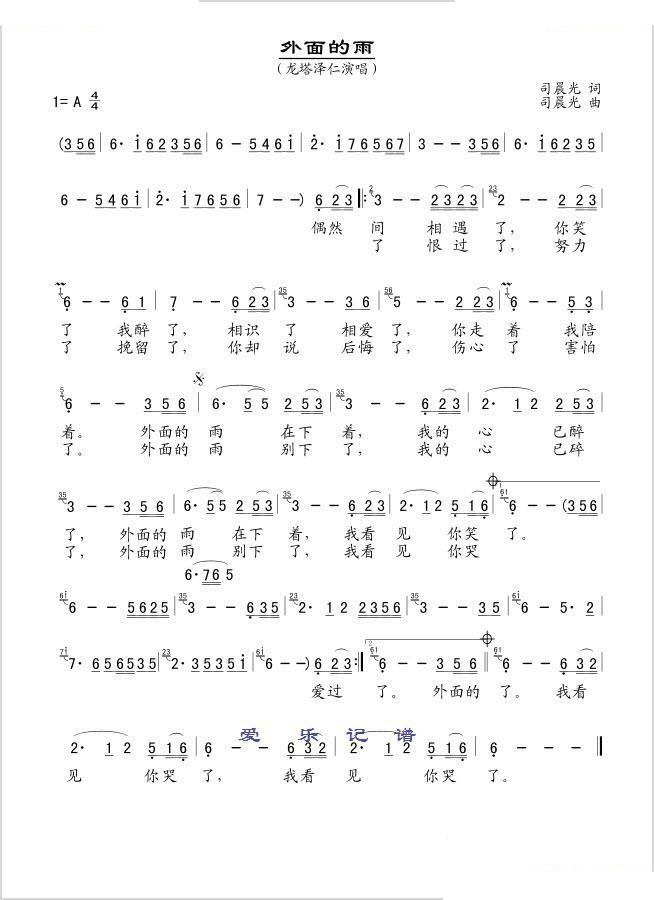 外面的雨
(龙塔泽仁演唱)
1= A 4/4
司晨光 词
司晨光 曲
(3 5 6 | 6· i 6 2 3 5 6 | 6 - 5 4 6 i | 2· i 7 6 5 6 7 | 3 - - 3 5 6 | 6· i 6 2 3 5
6 - 5 4 6 i | 2· i 7 6 5 6 | 7 - -) 6 2 3 |: 3 - - 2 3 2 3 | 2 - 2 2 3 |
偶然 间 相 遇 了, 你笑
了 恨 过 了, 努力
6 - - 6 1 | 7 - - 6 2 3 | 3 - - 3 6 | 5 - - 2 2 3 | 6 - - 5 3 |
了 我醉 了, 相识 了 相爱 了, 你走 着 我陪
了 挽留 了, 你却 说 后悔 了, 伤心 了 害怕
6 - - 3 5 6 | 6· 5 5 2 5 3 | 3 - - 6 2 3 | 2· 1 2 2 5 3 |
着。 外面的 雨 在下 着, 我的 心 已醉
了。 外面的 雨 别下 了, 我的 心 已碎
3 - - 3 5 6 | 6· 5 5 2 5 3 | 3 - - 6 2 3 | 2· 1 2 5 1 6 | 6 - - (3 5 6
了, 外面的 雨 在下 着, 我看 见 你笑 了。
了, 外面的 雨 别下 了, 我看 见 你哭
6· 7 6 5
6 - - 5 6 2 5 | 3 - - 6 3 5 | 2· 1 2 2 3 5 6 | 3 - - 3 5 | 6 - 5· 2
7· 6 5 6 5 3 5 | 2· 3 5 3 5 i | 6 - -) 6 2 3 :| 6 - - 3 5 6 || 6 - - 6 3 2 |
爱过 了。 外面的 了。 我看
爱 乐 记 谱
2· 1 2 5 1 6 | 6 - - 6 3 2 | 2· 1 2 5 1 6 | 6 - - - ||
见 你哭 了, 我看 见 你哭 了。